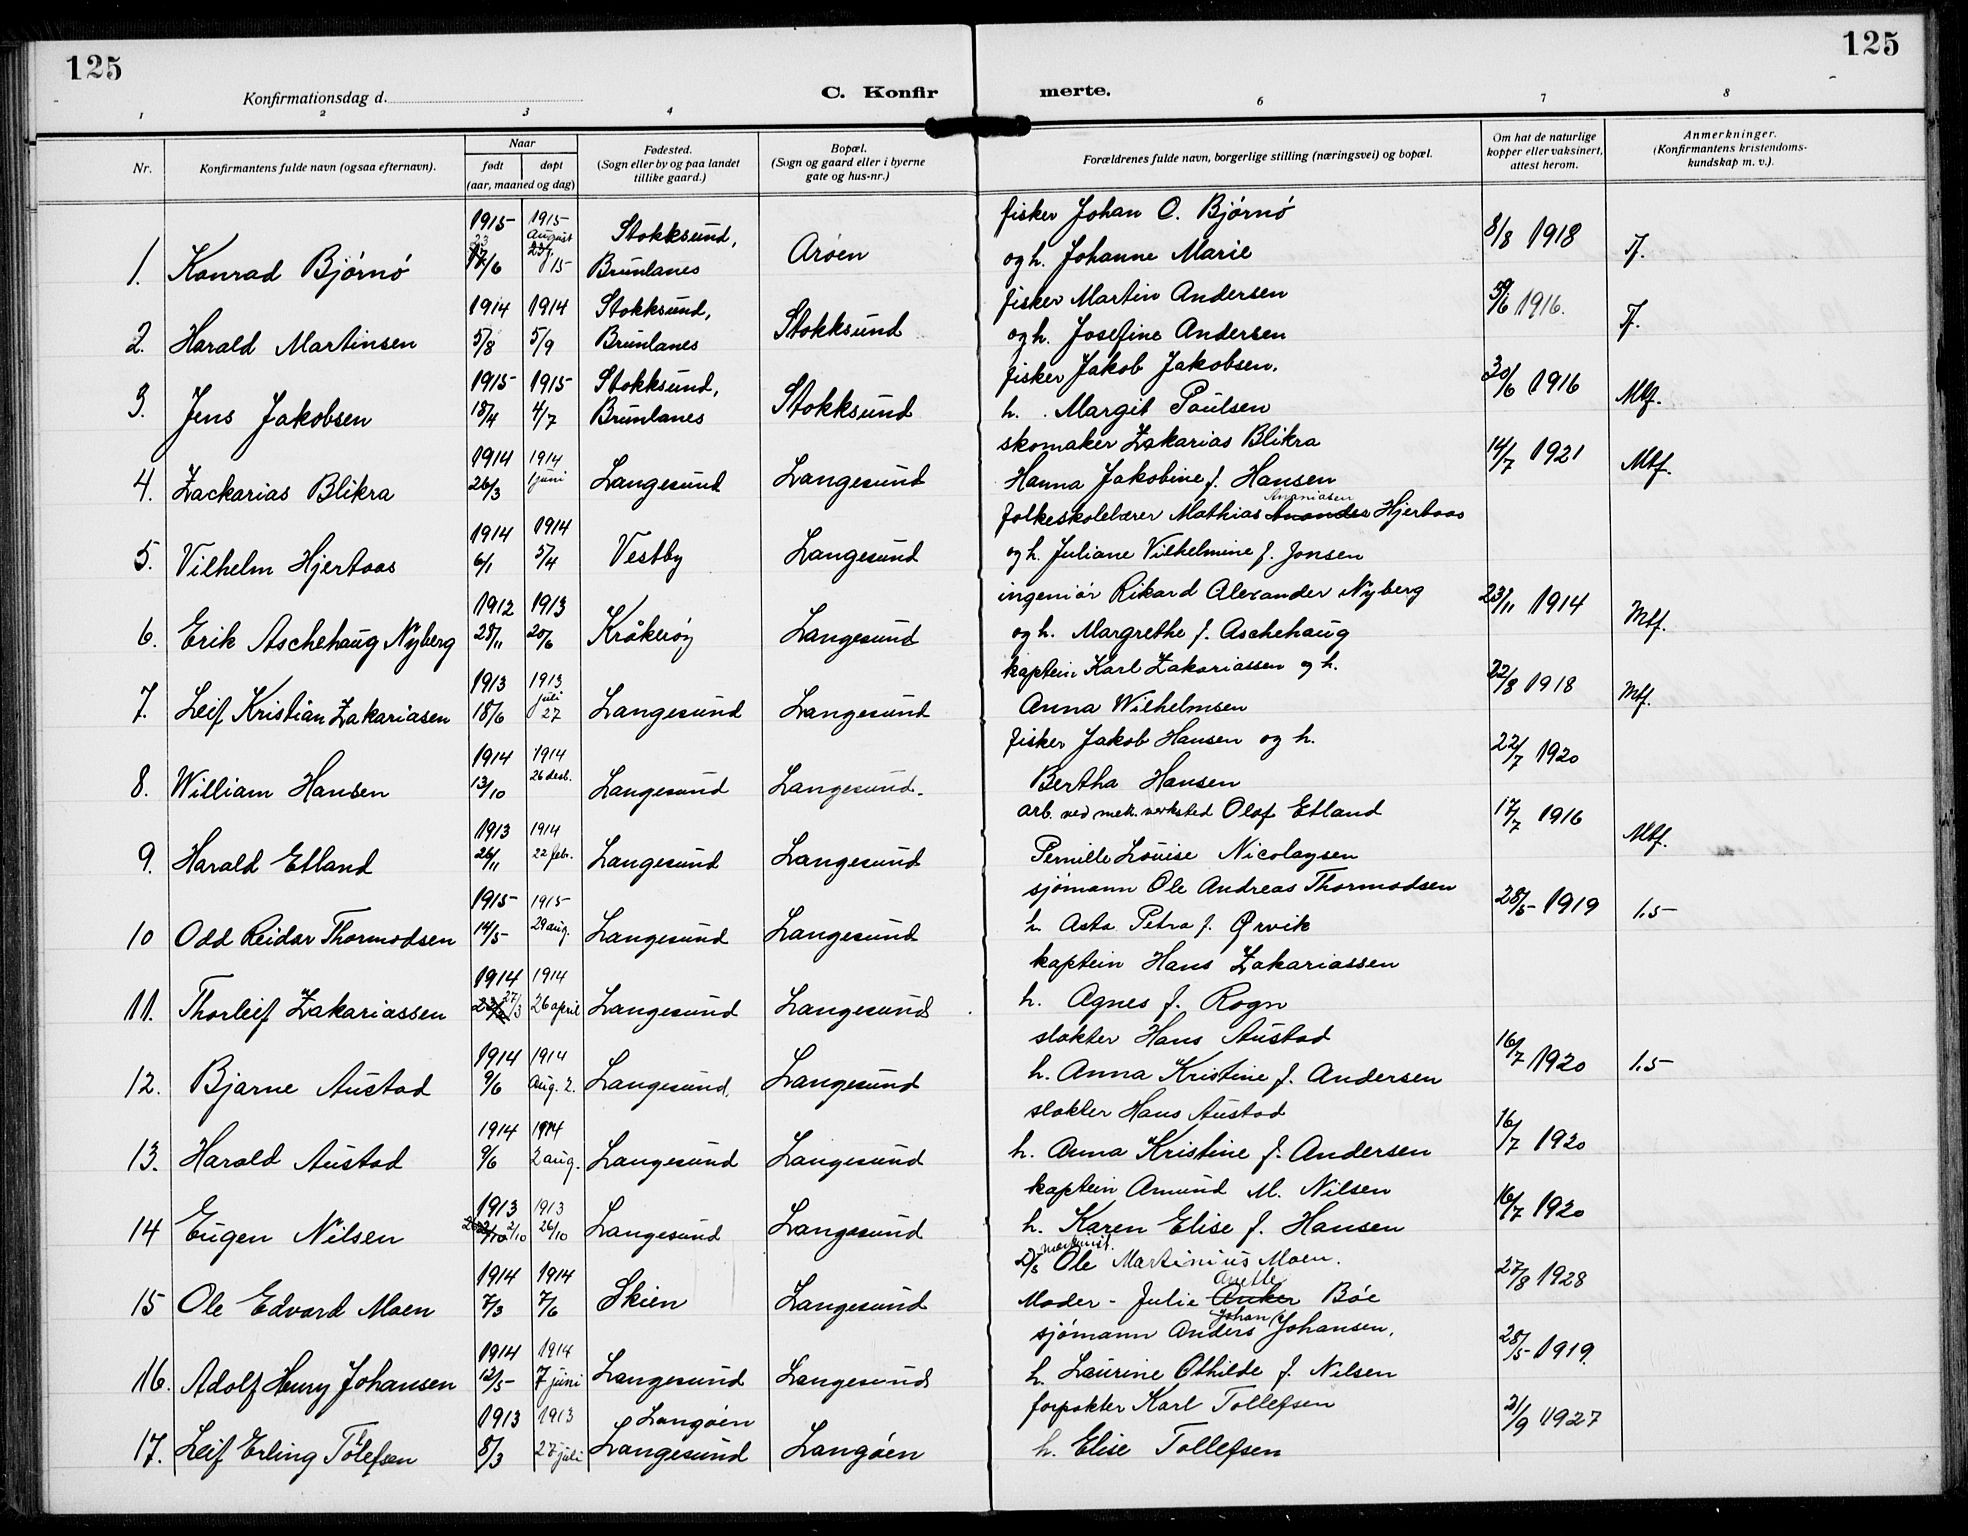 125
125
Konfirmationsdag d.
C. Konfirmerte.
1 2 3 4 6 7 8
Nr.
Konfirmantens fulde navn (ogsaa efternavn).
Naar
født døpt
(aar, maaned og dag)
Fødested.
(Sogn eller by og paa landet
tillike gaard.)
Bopæl.
(Sogn og gaard eller i byerne
gate og hus-nr.)
Forældrenes fulde navn, borgerlige stilling (næringsvei) og bopæl.
Om hat de naturlige
kopper eller vaksinert,
attest herom.
Anmerkninger.
(Konfirmantens kristendoms-
kundskap m. v.).
1915 1915 Stokksund, fisker Johan C. Bjørnø
1. Konrad Bjørnø 23/6 august 15 Brunlanes Arøen og h. Johanne Marie 8/8 1918 Tf.
1914 1914 Stokksund, fisker Martin Andersen
2. Harald Martinsen 5/8 5/9 Brunlanes Stokksund og h. Josefine Andersen 1916. Tf.
1915 1915 Stokksund, fisker Jakob Jakobsen.
3. Jens Jakobsen 18/4 4/7 Brunlanes Stokksund h. Margit Paulsen 30/6 1916 Mtf.
1914 1914 skomaker Zakarias Blikra
4. Zackarias Blikra 26/3 1 juni Langesund Langesund Hanna Jakobine f. Hansen 14/7 1921 Mtf.
1914 1914 folkeskolelærer Mathias Ananiasen Hjertaas
5. Vilhelm Hjertaas 6/1 5/4 Vestby Langesund og h. Juliane Vilhelmine f. Jonsen
1912 1913 ingeniør Rikard Alexander Nyberg
6. Erik Aschehaug Nyberg 28/11 20/6 Kråkerøy Langesund og h. Margrethe f. Aschehaug 23/11 1914 Mtf.
1913 1913 kaptein Karl Zakariassen og h.
7. Leif Kristian Zakariasen 18/6 juli 27 Langesund Langesund Anna Wilhelmsen 22/8 1918 Mtf.
1914 1914 fisker Jakob Hansen og h.
8. William Hansen 13/10 26 desb. Langesund Langesund. Bertha Hansen 22/7 1920
1913 1914 arb. ved mek. verksted Olaf Etland
9. Harald Etland 26/11 22 feb. Langesund Langesund Pernille Louise Nicolaysen 17/7 1916 Mtf.
1915 1915 sjømann Ole Andreas Thormodsen
10 Odd Reidar Thormodsen 14/5 29 aug. Langesund Langesund h. Asta Petra f. Ørvik 28/5 1919 1.5
1914 1914 kaptein Hans Zakariassen
11. Thorleif Zakariassen 27/3 26 april Langesund Langesund h. Agnes f. Rogn
1914 1914 slakter Hans Austad
12. Bjarne Austad 9/6 Aug. 2. Langesund. Langesund h. Anna Kristine f. Andersen 16/7 1920 1.5
1914 1914 slakter Hans Austad
13. Harald Austad 9/6 2 aug. Langesund Langesund h. Anna Kristine f. Andersen 16/7 1920
1913 1913 kaptein Amund M. Nilsen
14 Eugen Nilsen 2/10 26/10 Langesund Langesund h. Karen Elise f. Hansen 16/7 1920
1914 1914 Ole Martinius Moen.
15 Ole Edvard Moen 7/3 7/6 Skien Langesund Moder - Julie Anette Bøe 27/8 1928
1914 1914 sjømann Anders Johan Johansen,
16. Adolf Henry Johansen 12/5 7 juni Langesund Langesund h. Laurine Othilde f. Nilsen 28/5 1919.
1913 1913 Langøen forpakter Karl Tollefsen
17. Leif Erling Tollefsen 8/3 27 juli Langesund Langøen h. Elise Tollefsen 21/9 1927